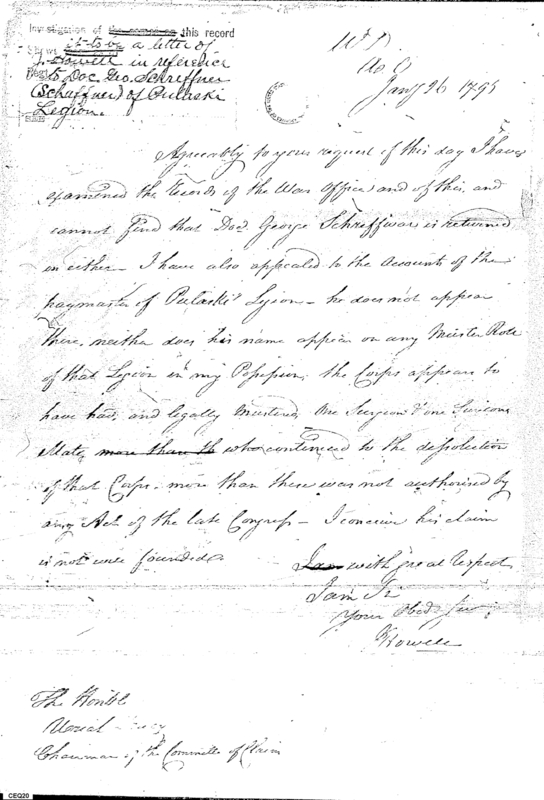 Investigation of the this record
Shows it to be a letter of
J. Howell in reference
to Doc. Geo. Schreffner
(Scheffner) of Pulaski
Legion.
W D
Ao. O
Jany 26 1795
Agreeably to your request of this day I have
examined the Records of the War Office and of this, and
cannot find that Doc. George Schreffner is returned
in either - I have also appealed to the accounts of the
paymaster of Pulaski's Legion - he does not appear
there, neither does his name appear on any Muster Role
of that Legion in my Possession, the Corps appears to
have had, and legally Mustered, One Surgeon & one Surgeons
Mate, more than th who continued to the dissolution
of that Corps. more than these was not authorised by
any Act of the late Congress - I conceive his claim
is not well founded
I am with great respect
I am Sir
Your Obed. Serv
J Howell
The Honble
Uriah
Chairman of the Committee of Claims
CEQ20